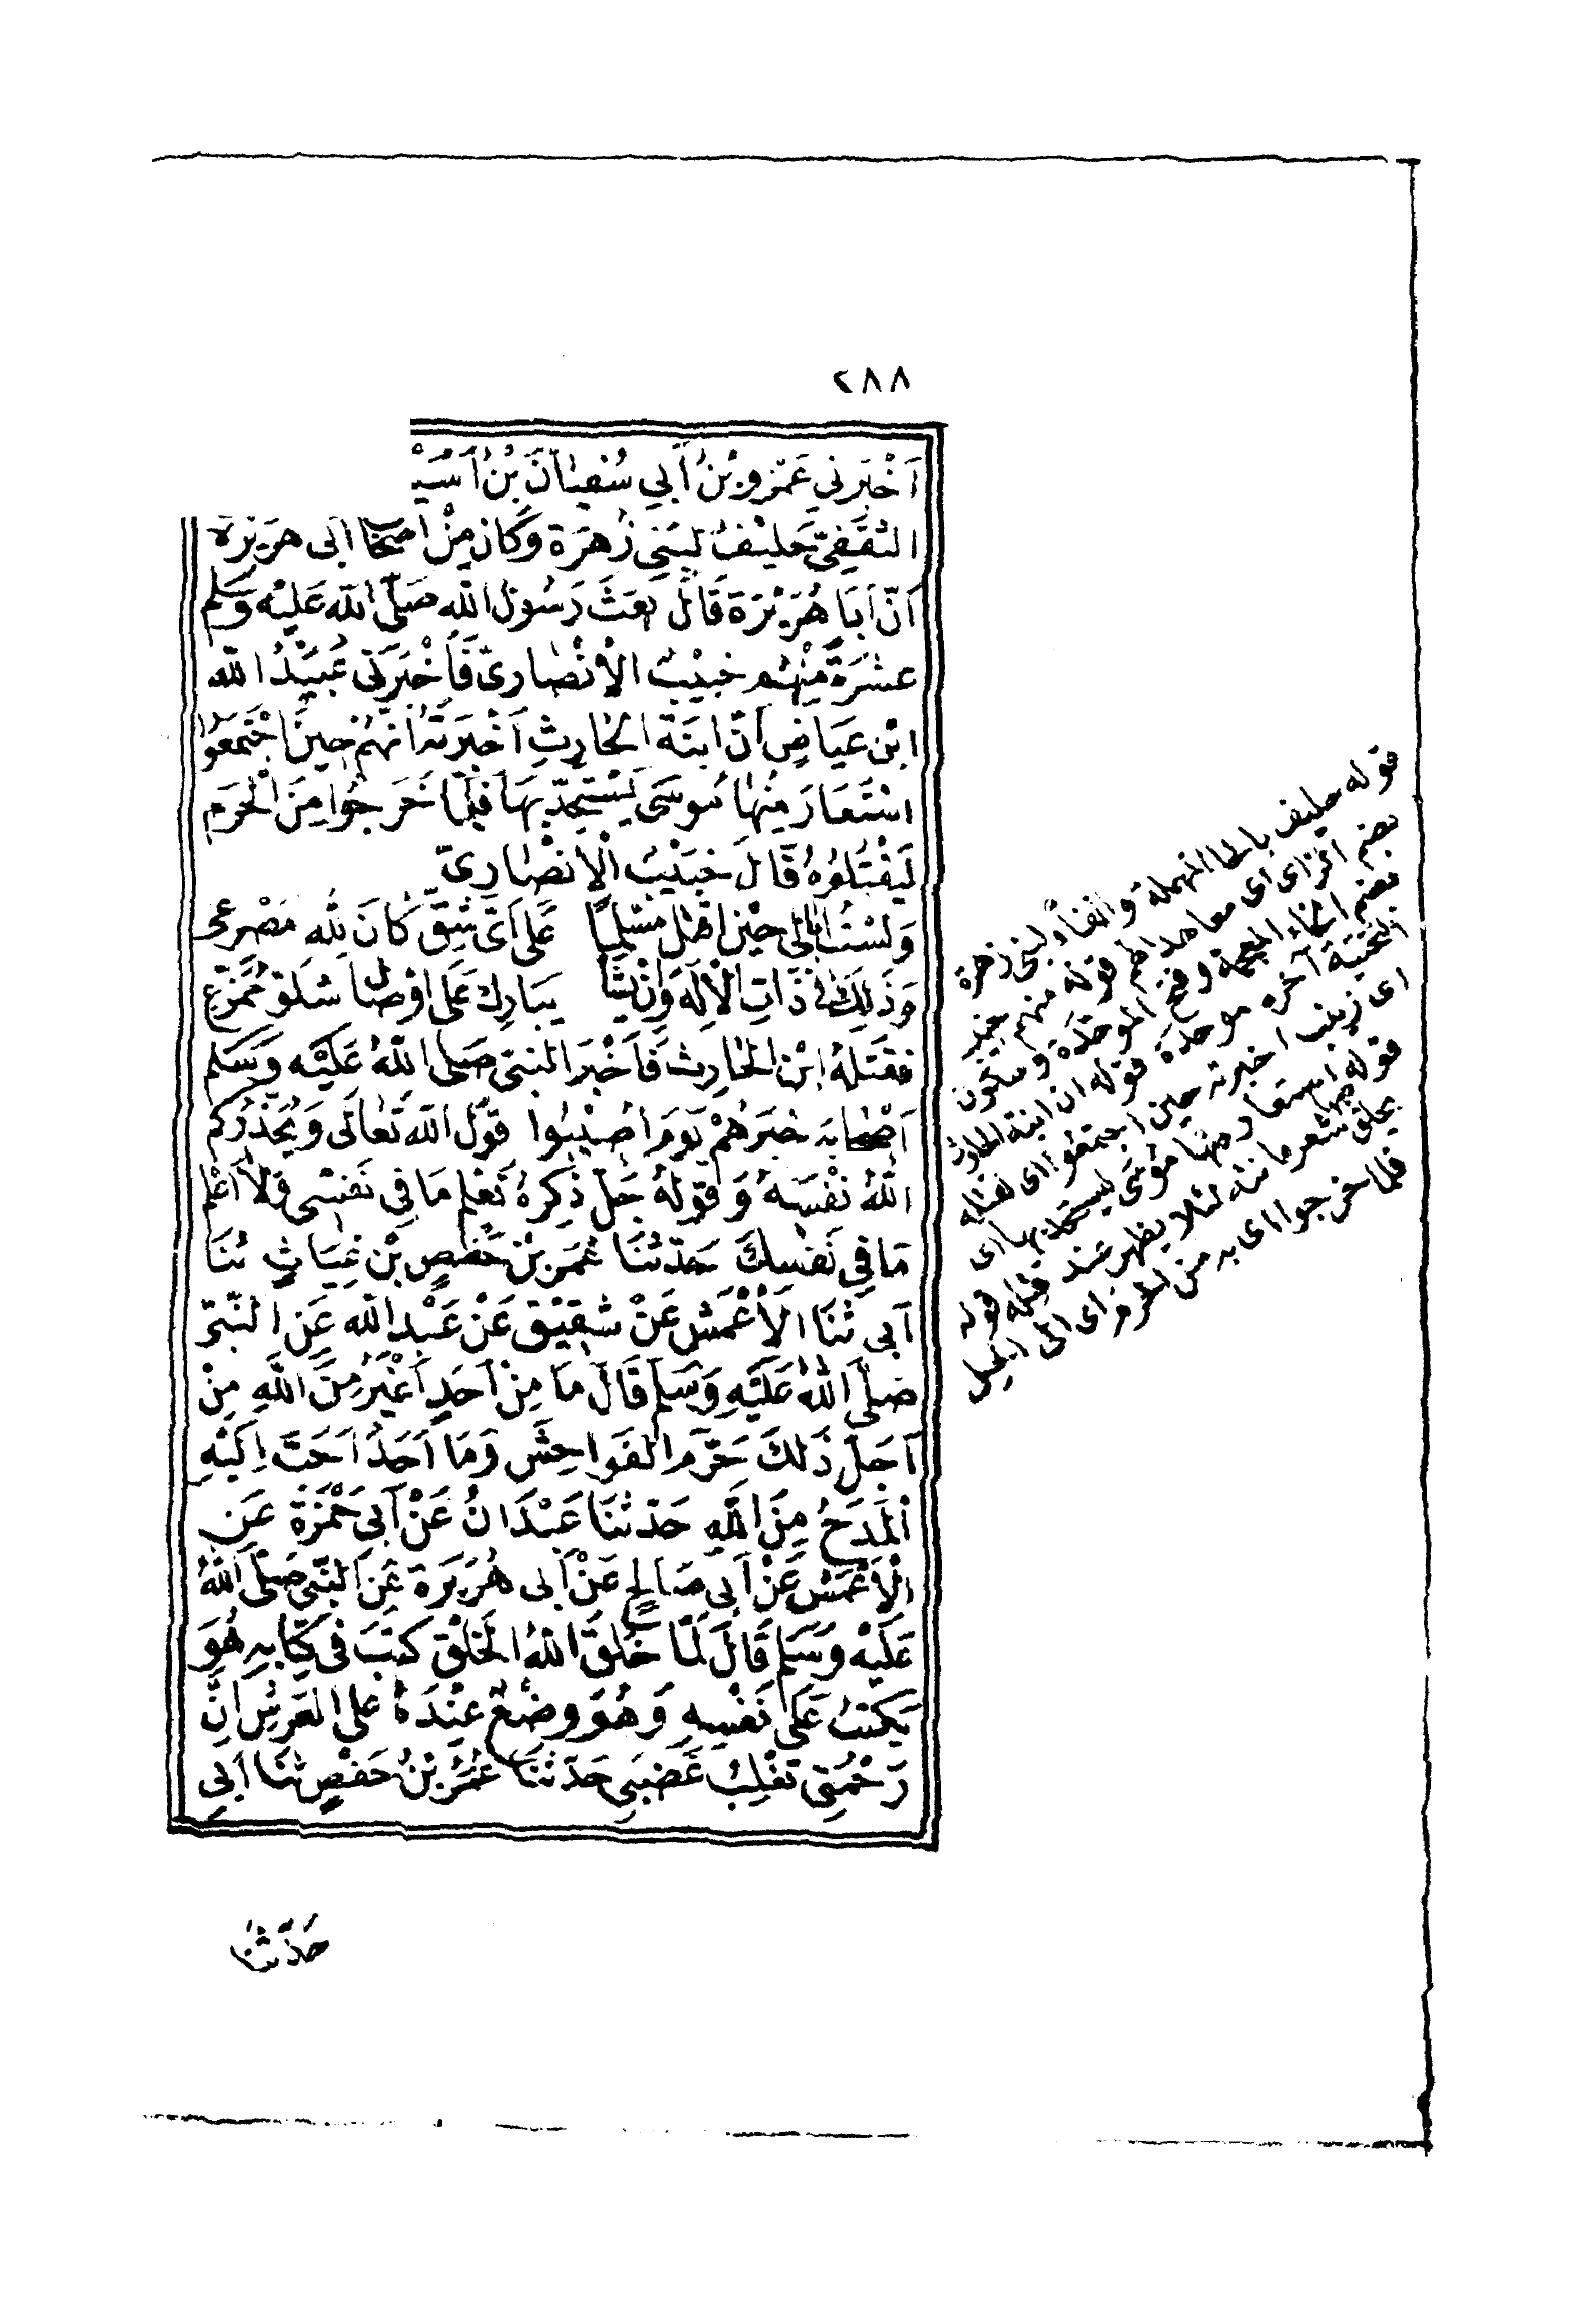 ٢٨٨
أَخْبَرَنِي عَمْرُو بْنُ أَبِي سُفْيَانَ بْنُ أَسِيْ
الثَّقَفِيّ حَلِيْفٌ لِبَنِي زُهْرَة وَكَانَ مِنْ أصْحَاب أبى هريْرَة
أَنَّ أَبَا هُرَيْرَة قَالَ بَعَثَ رَسُولُ اللّه صَلّى اللّه عَلَيْه وَسَلم
عشرَةً مِنْهُم خُبَيْبٌ الْأنْصَارِيّ فَأَخْبَرَنِى عُبَيْدُ اللّه
ابْن عِيَاضٍ أَنَّ ابنَةَ الحَارِثِ أَخْبَرَتْهُ أنّهُمْ حِينَ اجْتَمَعُوا
اسْتَعَارَ مِنْهَا مُوسَى يَسْتَحِدّ بِهَا فَلَمَّا خَرَجُوا مِنَ الْحَرَم
لِيَقْتُلُوهُ قَالَ خُبَيْبٌ الْأنْصَارِيّ
وَلَسْتُ أبَالى حِيْنَ أقْتَل مسْلِمًا عَلَى أىّ شِقّ كَانَ لِلّه مَصْرعى
وَذَلِكَ فى ذَاتِ الْإِلَه وَإنْ يَشَأ يبَارِك عَلى أوْصَال شلوٍ مُمَزّع
فقَتَلهُ ابْن الحَارِث فَأَخْبَر النبى صَلى اللّهُ عَلَيْه وَسَلم
أَصْحَابه خبَرَهُمْ يَومَ أُصِيْبُوا قَوْل اللّه تَعَالَى وَيُحَذّرُكم
اللّهُ نَفْسَه وَقَوْلهُ جَلّ ذِكرهُ تَعْلم مَا فِي نَفسْى وَلا أعْلم
مَا فِي نَفْسِكَ حَدّثنَا عُمَر بْن حَفْصٍ بْن غِيَاثٍ ثنَا
أَبِي ثَنَا الأَعْمَش عَنْ شَقِيْق عَنْ عَبْدِ اللّه عَنِ النّبىّ
صَلّى اللّهُ عَلَيْهِ وَسَلم قَالَ مَا مِنْ أَحَدٍ أَغْيَرُ مِنَ اللّهِ مِنْ
أَجَلِ ذَلكَ حَرَّم الفَوَاحِشَ وَمَا أَحَدٌ أَحَبّ إلَيْهِ
الْمَدحُ مِنَ اللّهِ حَدثنَا عَبْدَانُ عَنْ أَبِي حَمْزَة عَن
الْأَعْمَش عَنْ أَبِي صَالِحٍ عَنْ أَبى هُرَيرَة عَنِ النّبى صَلّى اللّهُ
عَلَيْه وَسَلم قَالَ لَمَّا خَلقَ اللّهُ الخَلْقَ كتَبَ فى كِتَابِهِ هُوَ
يَكْتبُ عَلى نَفْسِهِ وَهُوَ وضْعٌ عِنْدَهُ عَلى العَرْشِ انَّ
رَحْمَتِى تغْلِبُ غَضَبِى حَدّثنَا عُمَرُ بْنُ حَفْصٍ ثنَا أَبِي
قوله حليف بالحا المهملة والفاء لبنى زهرة
بضم الزاى اى معاهد لهم قوله منهم خبيب
بضم الخاء المعجمة وفتح الموحدة وسكون
التحتية آخره موحدة قوله ان ابنة الحارث
اى زينب اخبرته حين اجتمعوا اى لقتله
قوله استعار منها موسى يستحد بها اى
يحلق بها شعر عانته لئلا يظهر عند قتله قوله
فلما خرجوا اى به من الحرم اى الى الحل
حَدَّثنَا